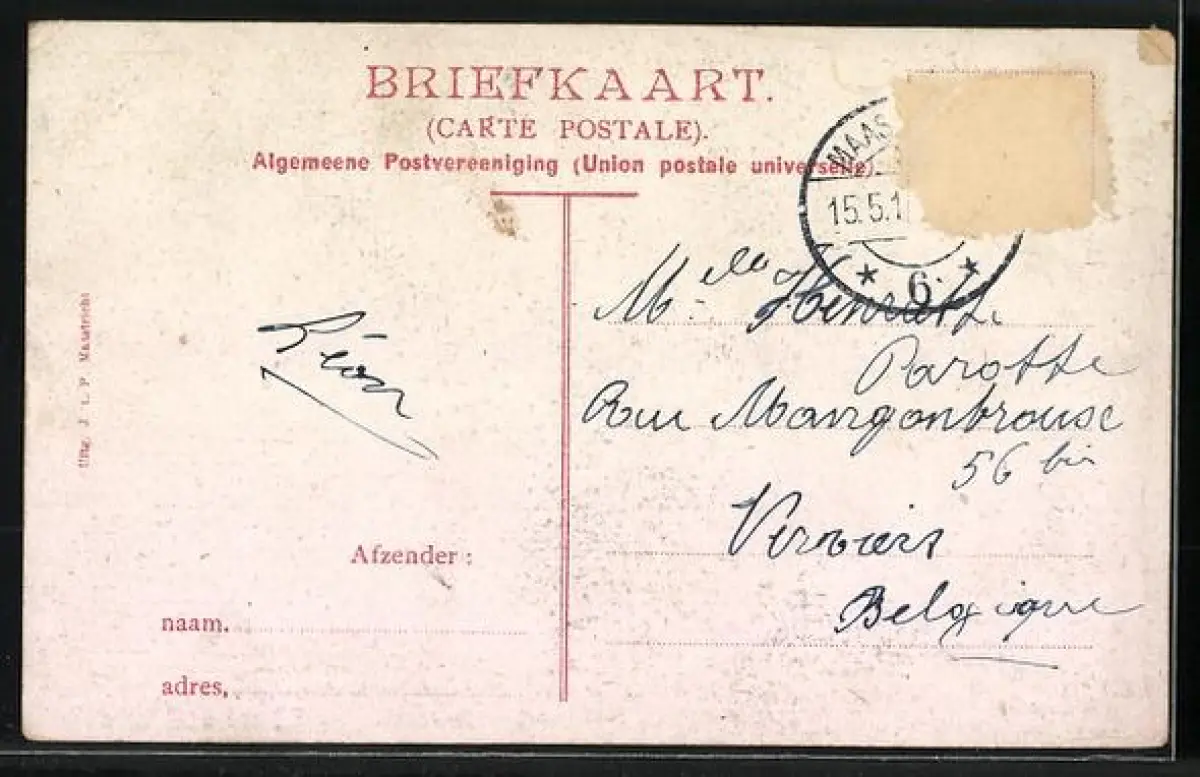 BRIEFKAART.
(CARTE POSTALE).
Algemeene Postvereeniging (Union postale universelle).
MAAS
15.5.1
* 6. *
Mlle Henriette
Parotte
Rue Mangonbrouse
56 bis
Verviers
Belgique
Léon
Uitg. J. L. P. Maastricht
Afzender:
naam.
adres.